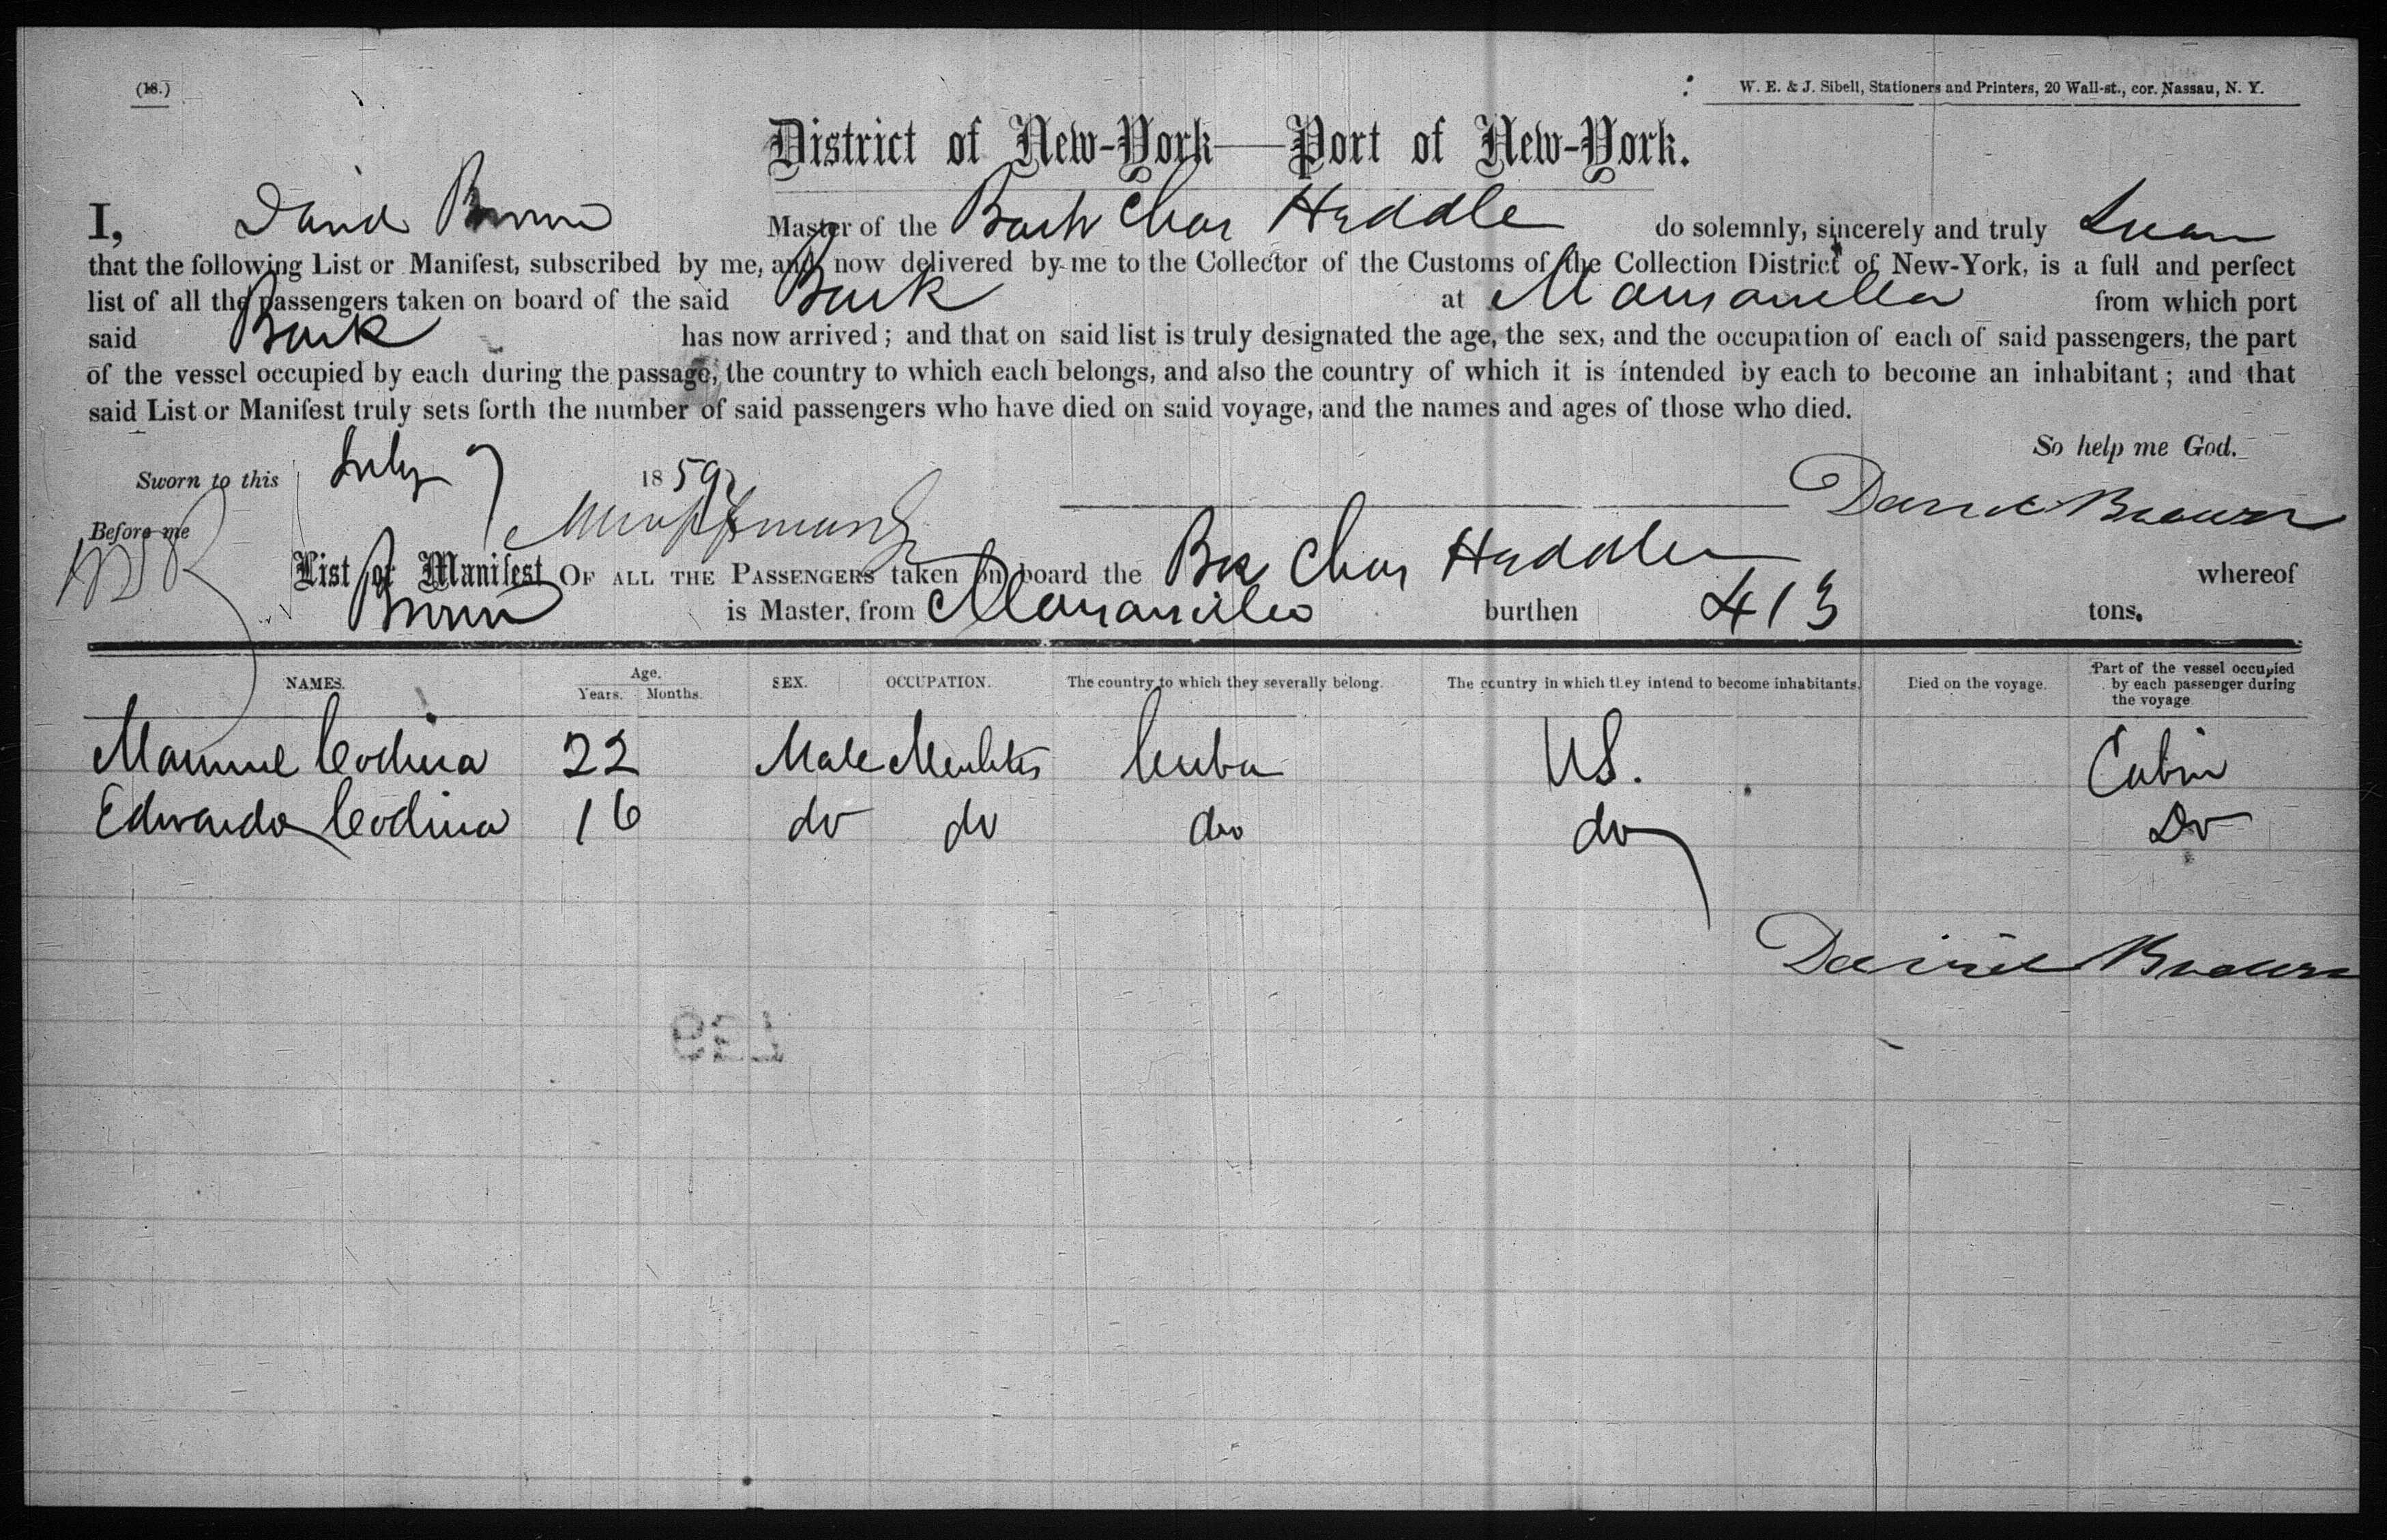 (18.)
W. E. & J. Sibell, Stationers and Printers, 20 Wall-st., cor. Nassau, N. Y.
District of New-York—Port of New-York.
I, David Brown Master of the Bark Chas Heddle do solemnly, sincerely and truly Swear
that the following List or Manifest, subscribed by me, and now delivered by me to the Collector of the Customs of the Collection District of New-York, is a full and perfect
list of all the passengers taken on board of the said Bark at Manzanilla from which port
said Bark has now arrived; and that on said list is truly designated the age, the sex, and the occupation of each of said passengers, the part
of the vessel occupied by each during the passage, the country to which each belongs, and also the country of which it is intended by each to become an inhabitant; and that
said List or Manifest truly sets forth the number of said passengers who have died on said voyage, and the names and ages of those who died.
So help me God.
Sworn to this July 7 1859
David Brown
Before me
List or Manifest OF ALL THE PASSENGERS taken on board the Bk Chas Heddle whereof
Brown is Master, from Manzanillo burthen 413 tons.
NAMES. Age. Years. Months. SEX. OCCUPATION. The country to which they severally belong. The country in which they intend to become inhabitants. Died on the voyage. Part of the vessel occupied by each passenger during the voyage
Manuel Codina 22 Male Merchts Cuba US. Cabin
Edwardo Codina 16 do do do do Do
David Brown